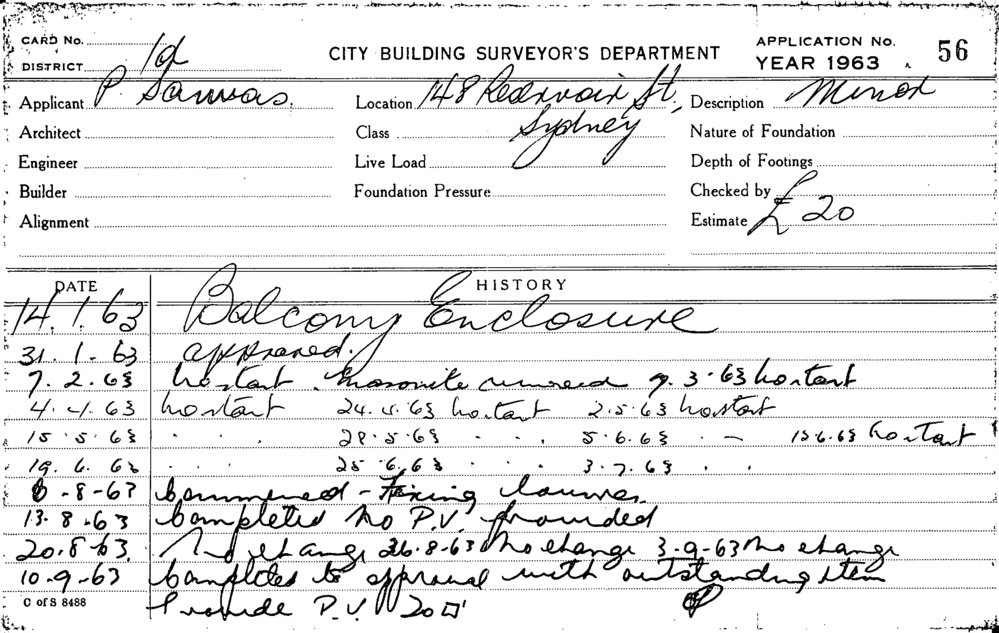 CARD No.
DISTRICT 1d
CITY BUILDING SURVEYOR'S DEPARTMENT
APPLICATION No. 56
YEAR 1963
Applicant P Sauvas. Location 148 Reservoir St, Sydney Description Minor
Architect Class Nature of Foundation
Engineer Live Load Depth of Footings
Builder Foundation Pressure Checked by
Alignment Estimate £20
DATE HISTORY
14.1.63 Balcony Enclosure
31.1-63 approved.
7.2.63 No start. Masonite removed 7.3.63 No start
4.4.63 No start 24.4.63 No start 2.5.63 No start
15.5.63 . . 28.5.63 . . . 5.6.63 . - 13.6.63 No start
19.6.63 . . . 25.6.63 . . . 3.7.63 . .
6-8-63 Commenced - Fixing louvres.
13.8.63 Completed No P.V. provided
20.8.63. No change 26.8-63 No change 3-9-63 No change
10.9-63 Completed to approval with outstanding item
C of S 8488 Provide P.V. 20□"